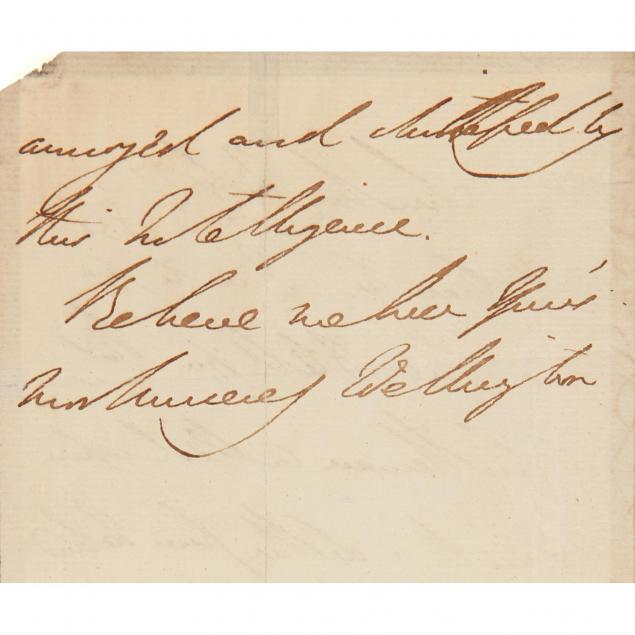 annoyed and distressed by
this Intelligence.
Believe me ever Yours
most sincerely Wellington